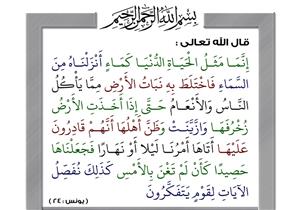 بِسْمِ اللَّهِ الرَّحْمَنِ الرَّحِيمِ
قال الله تعالى :
إِنَّمَا مَثَلُ الْحَيَاةِ الدُّنْيَا كَمَاءٍ أَنْزَلْنَاهُ مِنَ
السَّمَاءِ فَاخْتَلَطَ بِهِ نَبَاتُ الْأَرْضِ مِمَّا يَأْكُلُ
النَّاسُ وَالْأَنْعَامُ حَتَّى إِذَا أَخَذَتِ الْأَرْضُ
زُخْرُفَهَا وَازَّيَّنَتْ وَظَنَّ أَهْلُهَا أَنَّهُمْ قَادِرُونَ
عَلَيْهَا أَتَاهَا أَمْرُنَا لَيْلًا أَوْ نَهَارًا فَجَعَلْنَاهَا
حَصِيدًا كَأَنْ لَمْ تَغْنَ بِالْأَمْسِ كَذَلِكَ نُفَصِّلُ
الْآيَاتِ لِقَوْمٍ يَتَفَكَّرُونَ
( يونس : ٢٤ )